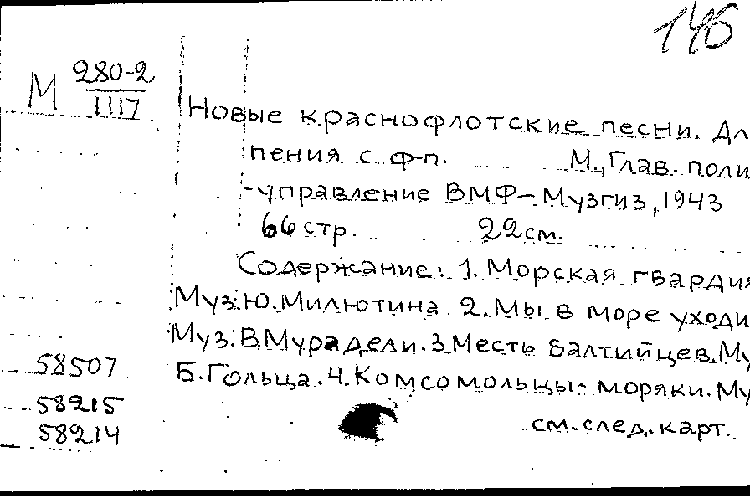 145
М 280-2
1117
Новые краснофлотские песни. Дл
пения с ф-п. М., Глав. поли
-управление ВМФ-Музгиз, 1943
66 стр. 22 см.
Содержание: 1. Морская гвардия
Муз. Ю. Милютина 2. Мы в море уходи
Муз. В. Мурадели. 3. Месть балтийцев. Му
58507
Б. Гольца. 4. Комсомольцы - моряки. Му
58215
см. след. карт.
58214